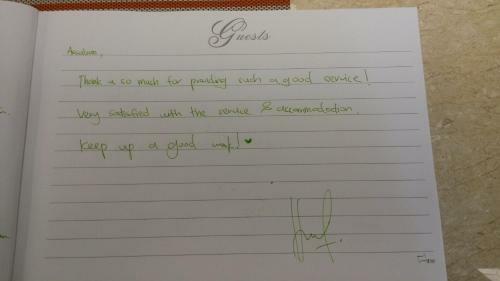 Guests
Assalam,
Thank u so much for providing such a good service!
Very satisfied with the service & accommodation.
Keep up a good work!